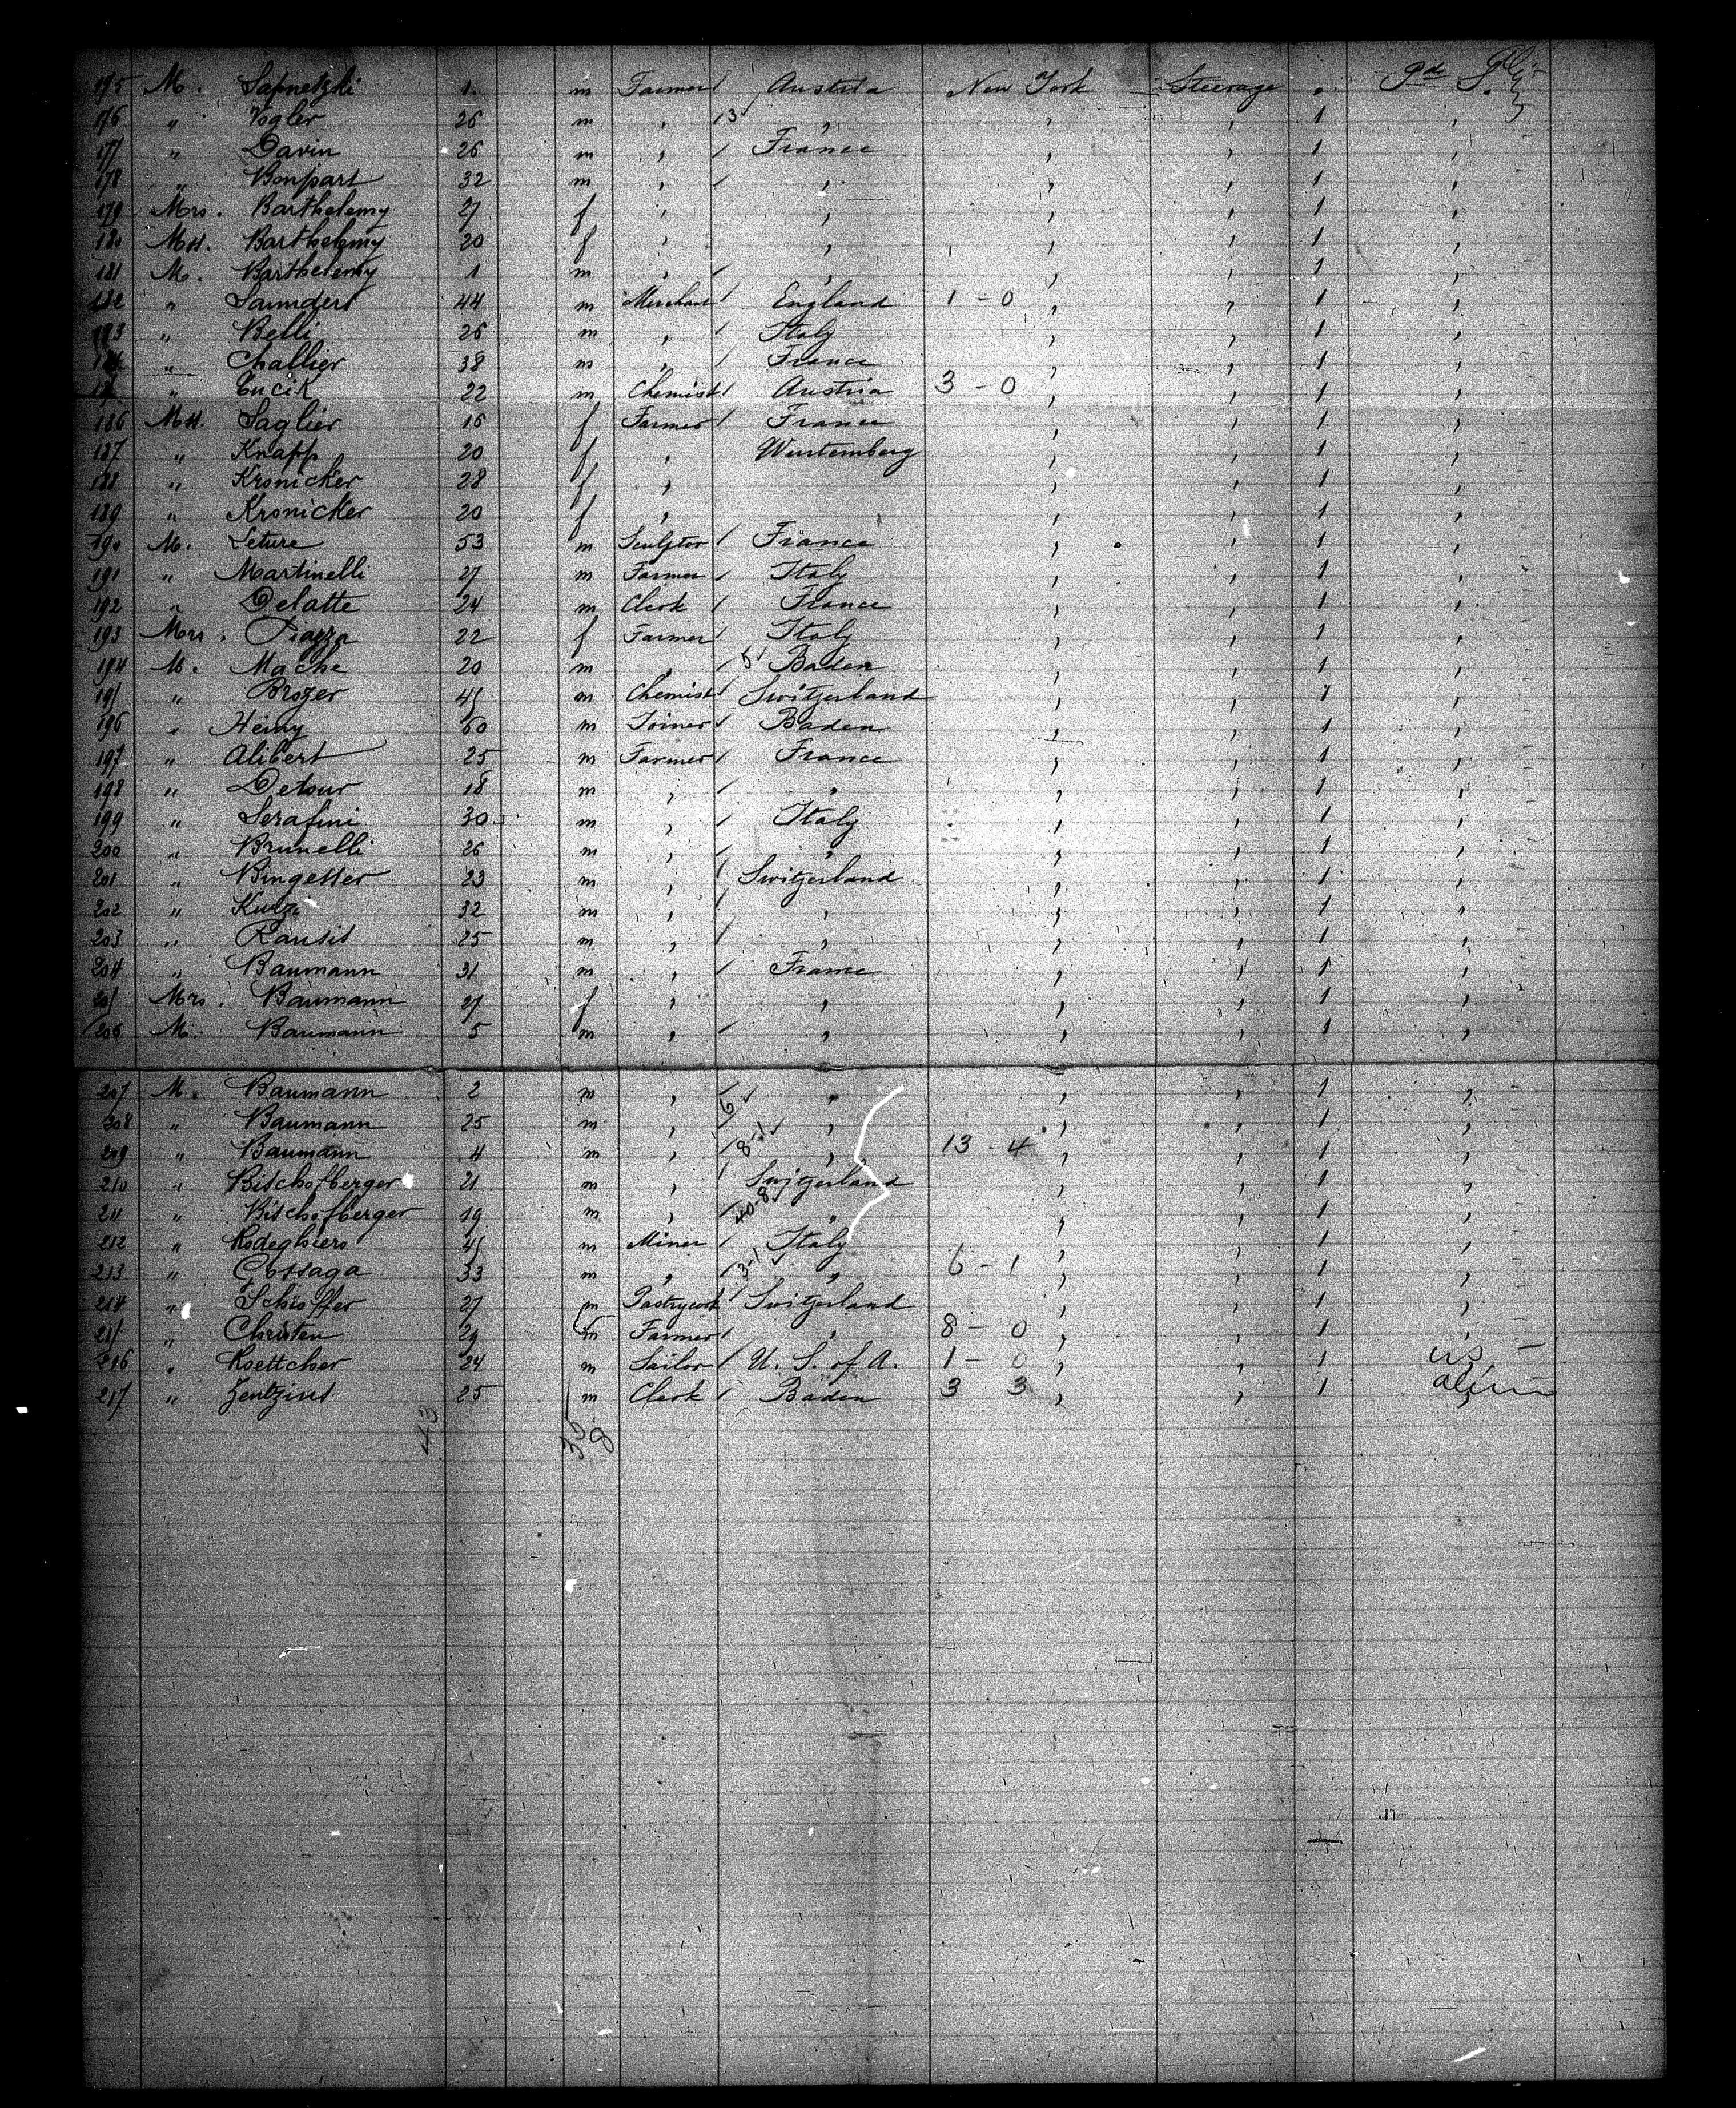 175 M. Sapnetzki 1. m Farmer Austria New York Steerage " 9de S.
176 " Vogler 26 m , 3 , , , 1 ,
177 " Davin 26 m , France , , 1 ,
178 " Bonpart 32 m , , , , 1 ,
179 Mrs. Barthelemy 27 f , , , , 1 ,
180 Mll. Barthelemy 20 f , , , , 1 ,
181 M. Barthelemy 1 m , , , , 1 ,
182 " Saunders 44 m Merchant England 1 - 0 , , 1 ,
183 " Belli 26 m , Italy , , 1 ,
184 " Challier 38 m , France , , 1 ,
" Cucik 22 m Chemist Austria 3 - 0 , , 1 ,
186 Mll. Saglier 16 f Farmer France , , 1 ,
187 " Knapp 20 f , Wurtemberg , , 1 ,
188 " Kronicker 28 f , , , 1 ,
189 " Kronicker 20 f , , , 1 ,
190 M. Leture 53 m Sculptor France , , 1 ,
191 " Martinelli 27 m Farmer Italy , , 1 ,
192 " Delatte 24 m Clerk France , , 1 ,
193 Mrs. Piazza 22 f Farmer Italy , , 1 ,
194 M. Mache 20 m , 5 Baden , , 1 ,
195 " Brozer 45 m Chemist Switzerland , , 1 ,
196 " Heiny 60 m Joiner Baden , , 1 ,
197 " Alibert 25 m Farmer France , , 1 ,
198 " Detour 18 m , , , , 1 ,
199 " Serafini 30 m , Italy , , 1 ,
200 " Brunelli 26 m , , , , 1 ,
201 " Bingesser 23 m , Switzerland , , 1 ,
202 " Kurz 32 m , , , , 1 ,
203 " Rausis 25 m , , , , 1 ,
204 " Baumann 31 m , France , , 1 ,
205 Mrs. Baumann 27 f , , , , 1 ,
206 M. Baumann 5 m , , , , 1 ,
207 M. Baumann 2 m , , , , 1 ,
208 " Baumann 25 m , 6 , , , 1 ,
209 " Baumann 4 m , 8-1 , 13 - 4 , , 1 ,
210 " Bischofberger 21 m , Switzerland , , 1 ,
211 " Bischofberger 19 m , 40-8 , , , 1 ,
212 " Rodeghiero 45 m Miner Italy , , 1 ,
213 " Cossaga 33 m , 3-1 , 6 - 1 , , 1 ,
214 " Schoffer 27 m Pastrycook Switzerland , , 1 ,
215 " Christen 29 m Farmer , 8 - 0 , , 1 ,
216 " Koettcher 24 m Sailor U. S. of A. 1 - 0 , , 1 us -
217 " Zentzius 25 m Clerk Baden 3 3 , , 1
43 35
8